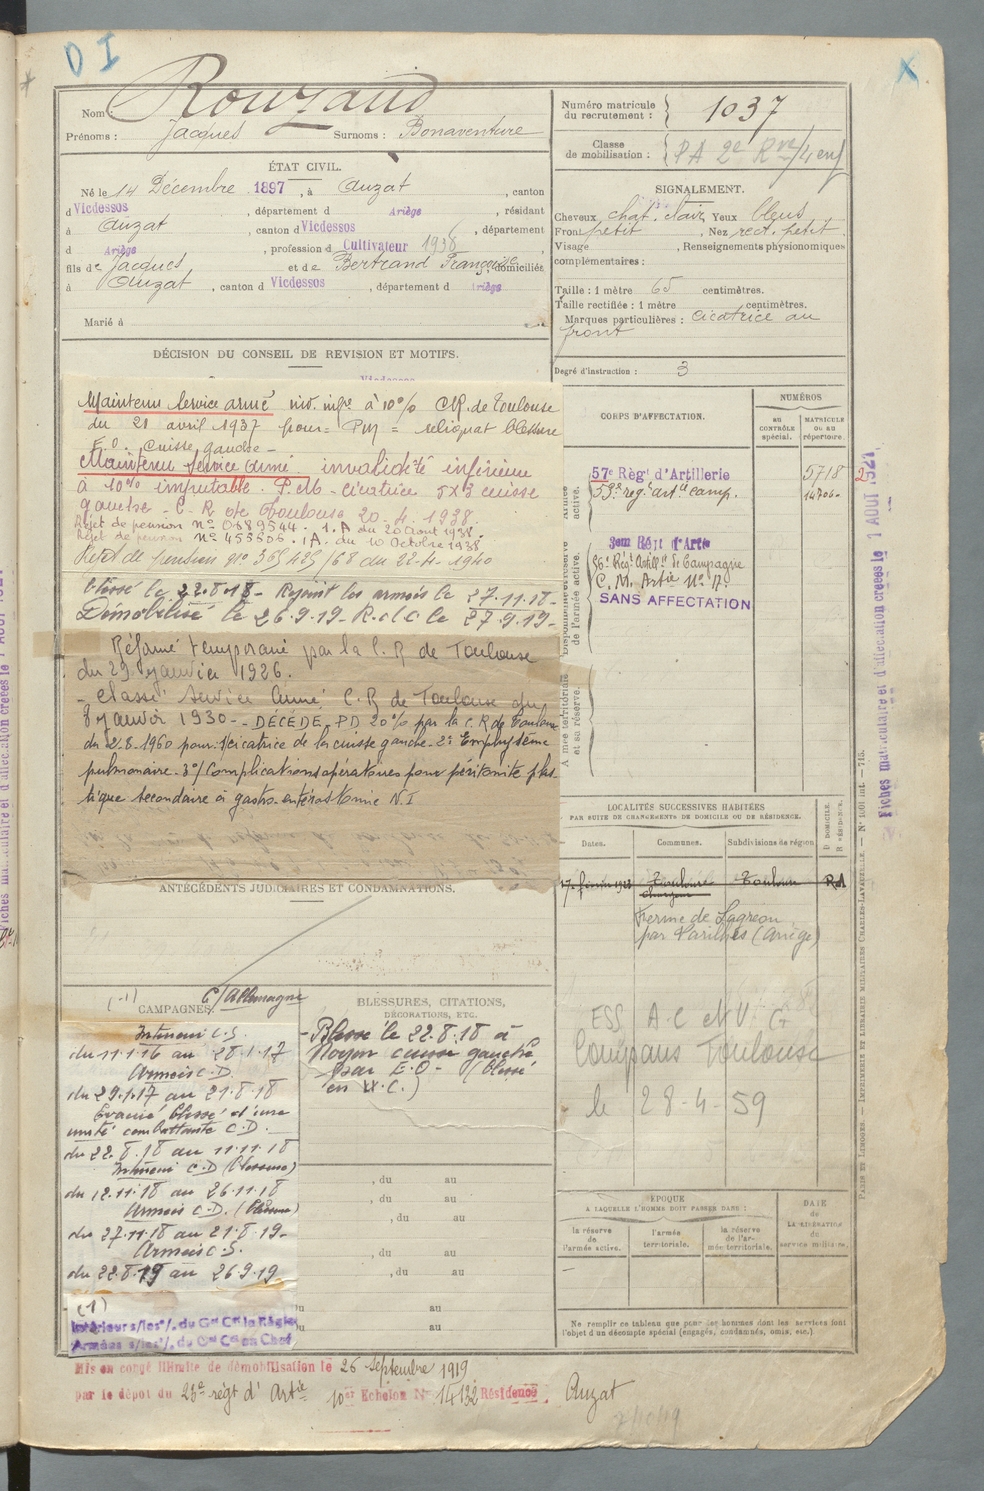 D I
X
Nom Rouzaud
Prénoms : Jacques Surnoms : Bonaventure
Numéro matricule du recrutement : 1037
Classe de mobilisation : PA 2e Rve/4 enf
ÉTAT CIVIL.
Né le 14 Décembre 1897, à Auzat, canton
d Vicdessos, département d Ariège, résidant
à Auzat, canton d Vicdessos, département
d Ariège, profession d Cultivateur 1938
fils de Jacques et de Bertrand Françoise, domiciliés
à Auzat, canton d Vicdessos, département d Ariège
Marié à
SIGNALEMENT.
Cheveux chat. Yeux bleus
Front petit, Nez rect. petit
Visage , Renseignements physionomiques
complémentaires :
Taille : 1 mètre 65 centimètres.
Taille rectifiée : 1 mètre centimètres.
Marques particulières : cicatrice au
front
Degré d'instruction : 3
DÉCISION DU CONSEIL DE REVISION ET MOTIFS.
Maintenu Service armé inv. infre à 10% CR. de Toulouse
du 21 avril 1937 pour = PM = reliquat blessure
E.O. Cuisse gauche -
Maintenu Service Armé. invalidité inférieure
à 10% imputable. P.M - cicatrice 5x3 cuisse
gauche - C. R de Toulouse 20.4.1938.
Rejet de pension No 0889544. 1.A du 20 Aout 1938.
Rejet de pension No 455506. 1A. du 10 Octobre 1938
Rejet de pension no 365425/68 du 22-4-1940
blessé le 22.8.18 - Rejoint les armées le 27.11.18-
Démobilisé le 26.9.19 R.d.C le 27.9.19-
Réformé temporaire par la C. R de Toulouse
du 29 janvier 1926.
- Classé Service Armé C. R de Toulouse du
8 janvier 1930 - DÉCÉDÉ - PD 20% par la C. R de Toulouse
du 2-8-1960 pour : 1/ cicatrice de la cuisse gauche - 2° Emphysème
pulmonaire - 3°/ Complications opératoires pour péritonite plas-
tique secondaire à gastro-entérostomie N. I
CORPS D'AFFECTATION.
NUMÉROS
au CONTRÔLE spécial.
MATRICULE OU AU répertoire.
Armée active.
57e Régt d'Artillerie 5718
59e régt artie camp. 14706-
Disponibilité et réserve de l'armée active.
3em Régt d'Artie
56e Régt Artill. de Campagne
C. M. Artie No 17
SANS AFFECTATION
Armée territoriale et sa réserve.
LOCALITÉS SUCCESSIVES HABITÉES
PAR SUITE DE CHANGEMENTS DE DOMICILE OU DE RÉSIDENCE.
Dates. Communes. Subdivisions de région D DOMICILE. R RÉSIDENCE.
17 février 1928 Toulouse Toulouse
Ferme de Lagréou
par Varilhes (Ariège)
ESS A.C et V. G
Compans Toulouse
le 28-4-59
ANTÉCÉDENTS JUDICIAIRES ET CONDAMNATIONS.
(1) C/ Allemagne
CAMPAGNES.
Intérieur C.S.
du 11.1.16 au 28.1.17
Armées C.D.
du 29.1.17 au 21.8.18
Evacué blessé d'une
unité combattante C.D.
du 22.8.18 au 11.11.18
Intérieur C.D (blessure)
du 12.11.18 au 26.11.18
Armées C.D. (blessure)
du 27.11.18 au 21.8.19-
Armées C.S.
du 22.8.19 au 26.9.19
(1)
Intérieur s/les o/. du Gal Ct la Région
Armées s/les o/. du Gal Ct en Chef
BLESSURES, CITATIONS,
DÉCORATIONS, ETC.
- Blessé le 22.8.18 à
Noyon cuisse gauche
par E.O - (blessé
en U.C.)
, du au
, du au
, du au
, du au
, du au
du au
du au
ÉPOQUE
A LAQUELLE L'HOMME DOIT PASSER DANS :
la réserve de l'armée active.
l'armée territoriale.
la réserve de l'armée territoriale.
DATE de LA LIBÉRATION du service militaire.
Ne remplir ce tableau que pour les hommes dont les services font
l'objet d'un décompte spécial (engagés, condamnés, omis, etc.)
Mis en congé illimité de démobilisation le 26 septembre 1919
par le dépôt du 23e régt d'Artie 10e Echelon No 14132 Résidence Auzat
7/10/19
Fiches matriculaire et d'affectation créées le 1 AOUT 1927
PARIS ET LIMOGES. — IMPRIMERIE ET LIBRAIRIE MILITAIRES CHARLES-LAVAUZELLE. — N° 1001 int. — 715.